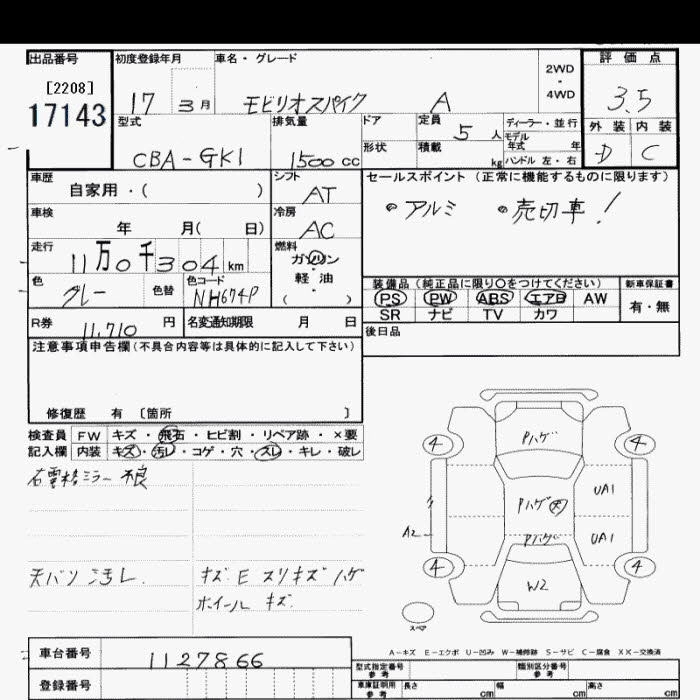 出品番号 初度登録年月 車名・グレード 2WD・4WD 評価点
[2208]
17143 17 3月 モビリオスパイク A 3.5
型式 排気量 ドア 定員 5人 ディーラー・並行 外装 内装
モデル年式 年
CBA-GK1 1500cc 形状 積載 kg ハンドル 左・右 D C
車歴 シフト セールスポイント(正常に機能するものに限ります)
自家用・( ) AT ・アルミ ・売切車!
車検 冷房
年 月( 日) AC
走行 燃料
11万0千304km ガソリン
色 グレー 色替 色コード NH674P 軽油 装備品(純正品に限り○をつけてください) 新車保証書
( ) PS PW ABS エアB AW 有・無
R券 11,710円 名変通知期限 月 日 SR ナビ TV カワ
注意事項申告欄(不具合内容等は具体的に記入して下さい) 後日品
修復歴 有 〔箇所 〕
検査員 FW キズ・飛石・ヒビ割・リペア跡・×要
記入欄 内装 キズ・汚レ・コゲ・穴・スレ・キレ・破レ
ミラー不良
天バリ汚レ キズ E スリキズ ハゲ
ホイールキズ
4 Pハゲ 4
Pハゲ 大 UA1
A2 Pハゲ UA1
4 W2 4
スペア
A-キズ E-エクボ U-凹み W-補修跡 S-サビ C-腐食 XX-交換済
車台番号 1127866 型式指定番号 参考 類別区分番号 参考
登録番号 車庫証明用 参考 長さ cm 幅 cm 高さ cm